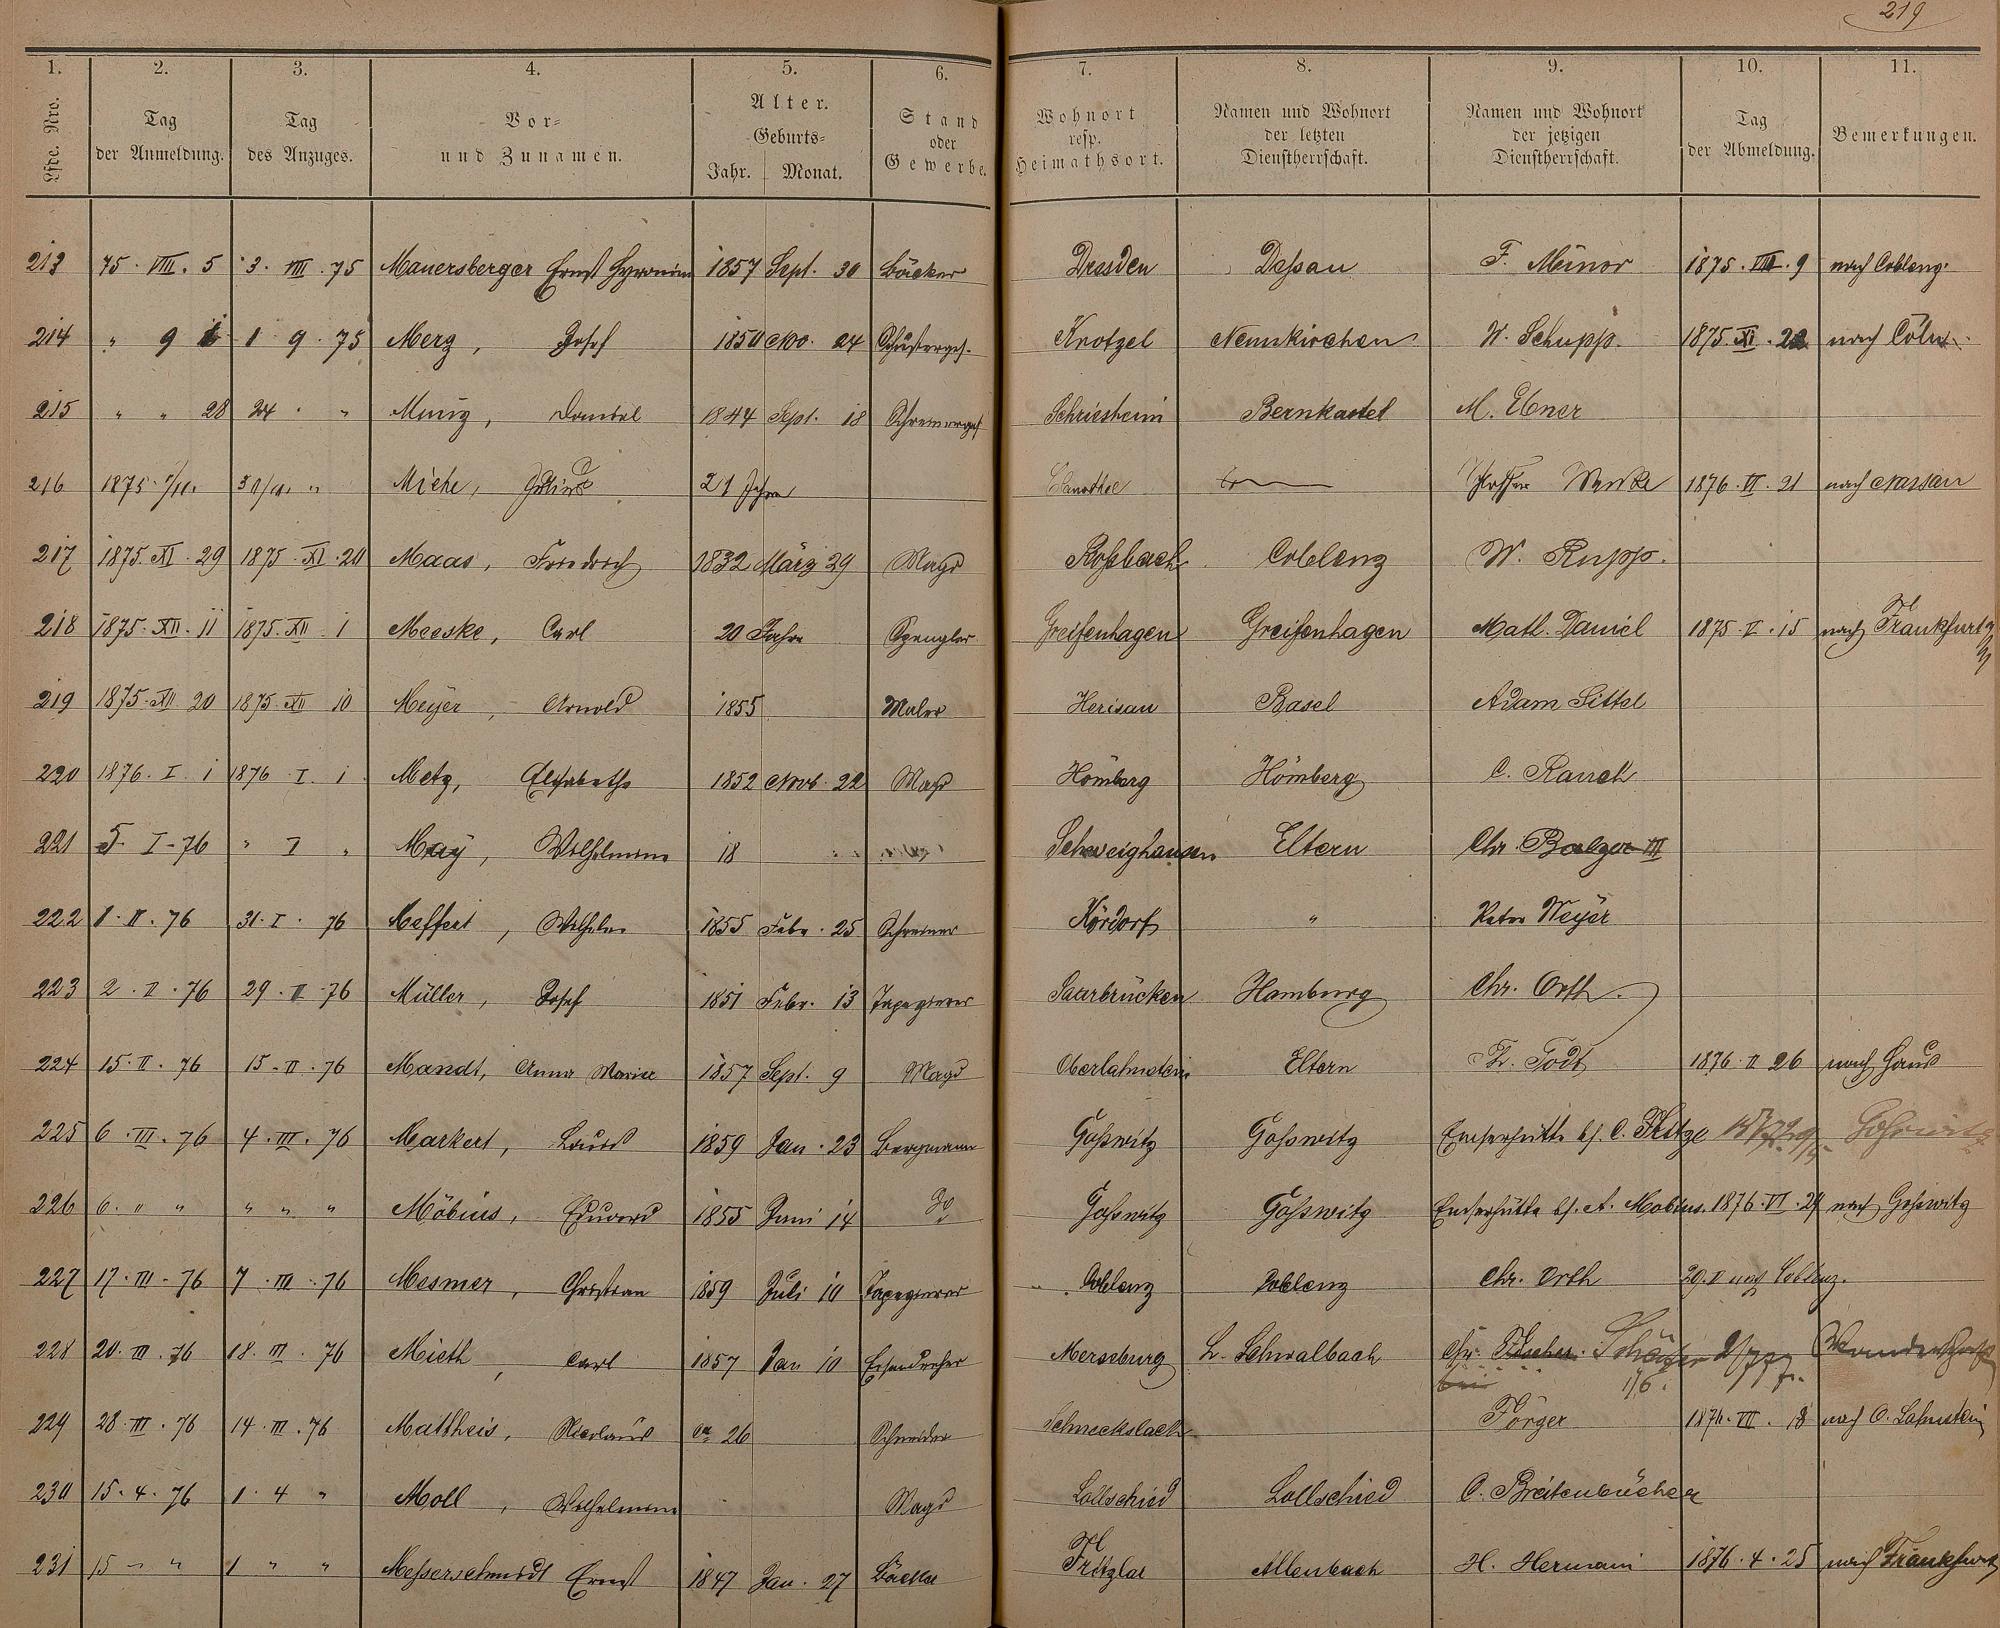 219
1. 2. 3. 4. 5. 6. 7. 8. 9. 10. 11.
Lfde. Nro. | Tag der Anmeldung. | Tag des Anzuges. | Vor- und Zunamen. | Alter. Geburts- Jahr. Monat. | Stand oder Gewerbe. | Wohnort resp. Heimathsort. | Namen und Wohnort der letzten Dienstherrschaft. | Namen und Wohnort der jetzigen Dienstherrschaft. | Tag der Abmeldung. | Bemerkungen.
213 75. VIII. 5 3. VIII. 75 Mauersberger Ernst 1857 Sept. 30 Bäcker Dresden Dessau F. Minor 1875. VIII. 9 nach Coblenz
214 " 9 1 9. 75 Merz, Josef 1850 Nov. 24 Schusterges. Knotzel Neunkirchen W. Schupp. 1875. XI. 22 nach Cöln
215 " " 28 24 " " Munz, 1844 Sept. 18 Schreinerges Schriesheim Bernkastel M. Ebner
216 1875 Miche, Julius 21 Jahre 1876. VI. 21 nach Nassau
217 1875. XI. 29 1875. XI. 20 Maas, Friedrich 1832 März 29 Magd Roßbach Coblenz W. Rupp.
218 1875. XII. 11 1875. XII. 1 Meeske, Carl 20 Jahre Spengler Greifenhagen Greifenhagen Math. Daniel 1875. V. 15 nach Frankfurt a/M
219 1875. XII 20 1875. XII 10 Meyer, Arnold 1855 Maler Herisau Basel Adam Sittel
220 1876. I. 1 1876. I. 1 Metz, Elisabetha 1852 Novb. 22 Magd Hömberg Hömberg C. Rauch
221 5 I - 76 " I " May, Wilhelmine 18 Schweighausen Eltern Chr. Balzer III
222 1. II. 76 31. I. 76 Meffert, Wilhelm 1855 Febr. 25 Schreiner Kördorf " Peter Meyer
223 2. II. 76 29. II. 76 Müller, Josef 1851 Febr. 13 Tapezierer Saarbrücken Hamburg Chr. Orth.
224 15. II. 76 15. II. 76 Mandt, Anna Maria 1857 Sept. 9 Magd Oberlahnstein Eltern Todt 1876. II 26 nach Haus
225 6. III. 76 4. III. 76 Markert, Louis 1859 Jan. 23 Bergmann Goßwitz Goßwitz Emserhütte bf. C. Fritze Goßwitz
226 6. " " " " " Möbius, Eduard 1855 Juni 14 do Goßwitz Goßwitz Emserhütte bf. A. Mobius. 1876. VI. 24 nach Goßwitz
227 17. III. 76 7. III. 76 Mesmer, Christian 1859 Juli 10 Tapezierer Coblenz Coblenz Chr. Orth 29. V nach Coblenz.
228 20. III. 76 18. III. 76 Mieth, Carl 1857 Jan 10 Eisendreher Merseburg L. Schwalbach Chr. Fischer. Schäfer Wanderschaft
bei 176.
229 28. III. 76 14. III. 76 Mattheis, Nicolaus ca 26 Schneider Förger 1876. VII. 18 nach O. Lahnstein
230 15. 4. 76 1. 4 " Moll, Wilhelmine Magd Lollschied Lollschied C. Breitenbücher
231 15 " " 1 " " Messerschmidt Ernst 1847 Jan. 27 Bäcker Fritzlar Allenbach H. Hermani 1876. 4. 25 nach Frankfurt